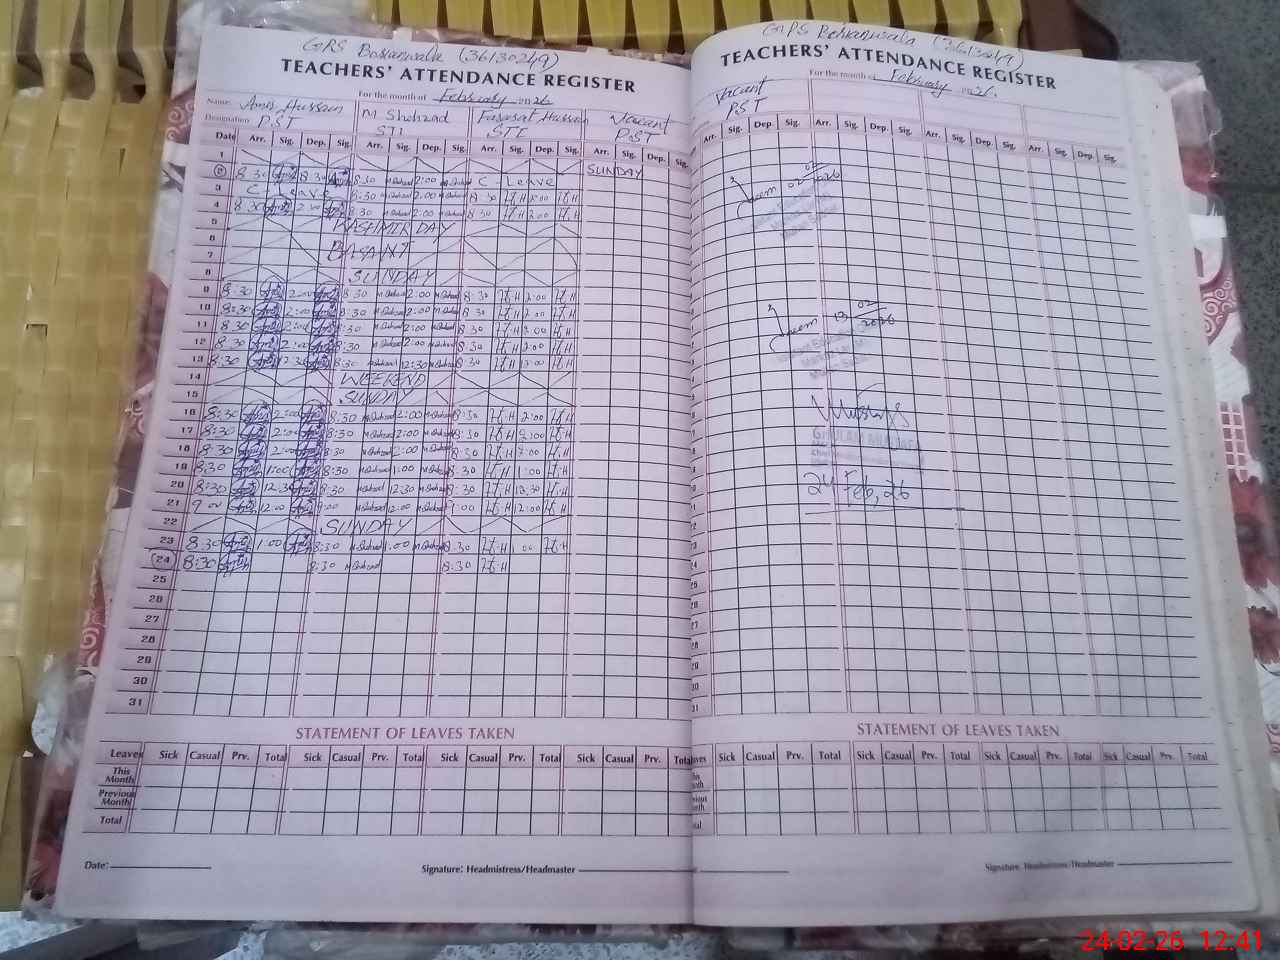 GPS Bosianwala (36130249)
TEACHERS' ATTENDANCE REGISTER
For the month of February 2026
Name: Anis Hussain M Shahzad Farasat Hussain Vacant
Designation PST STI STI PST
Date Arr. Sig. Dep. Sig. Arr. Sig. Dep. Sig. Arr. Sig. Dep. Sig. Arr. Sig. Dep. Sig.
1 SUNDAY
2 8:30 8:30 8:30 M Shahzad 2:00 M Shahzad C - Leave
3 C - Leave 8:30 M Shahzad 2:00 M Shahzad 8:30 H 2:00 H
4 8:30 2:00 8:30 M Shahzad 2:00 M Shahzad 8:30 H 2:00 H
5 KASHMIR DAY
6
7 BASANT
8 SUNDAY
9 8:30 2:00 8:30 M Shahzad 2:00 M Shahzad 8:30 H 2:00 H
10 8:30 2:00 8:30 M Shahzad 2:00 M Shahzad 8:30 H 2:00 H
11 8:30 2:00 8:30 M Shahzad 2:00 M Shahzad 8:30 H 2:00 H
12 8:30 2:00 8:30 M Shahzad 2:00 M Shahzad 8:30 H 2:00 H
13 8:30 12:30 8:30 M Shahzad 12:30 M Shahzad 8:30 H H
14 WEEKEND
15 SUNDAY
16 8:30 2:00 8:30 M Shahzad 2:00 M Shahzad 8:30 H 2:00 H
17 8:30 2:00 8:30 M Shahzad 2:00 M Shahzad 8:30 H 2:00 H
18 8:30 2:00 8:30 M Shahzad 2:00 M Shahzad 8:30 H 2:00 H
19 8:30 1:00 8:30 M Shahzad 1:00 M Shahzad 8:30 H 1:00 H
20 8:30 12:30 8:30 M Shahzad 12:30 M Shahzad 8:30 H 12:30 H
21 9:00 12:00 9:00 M Shahzad 12:00 M Shahzad 9:00 H 12:00 H
22 SUNDAY
23 8:30 1:00 8:30 M Shahzad 1:00 M Shahzad 8:30 H 1:00 H
24 8:30 8:30 M Shahzad 8:30 H
25
26
27
28
29
30
31
STATEMENT OF LEAVES TAKEN
Leaves Sick Casual Prv. Total Sick Casual Prv. Total Sick Casual Prv. Total Sick Casual Prv. Total
This Month
Previous Month
Total
Date:
Signature: Headmistress/Headmaster
GPS Bosianwala (36130249)
TEACHERS' ATTENDANCE REGISTER
For the month of February 2026.
Vacant
PST
Arr. Sig. Dep. Sig. Arr. Sig. Dep. Sig. Arr. Sig. Dep. Sig. Arr. Sig. Dep. Sig.
02 02 2026
13 02 2026
GHULAM
24 Feb, 26
STATEMENT OF LEAVES TAKEN
Sick Casual Prv. Total Sick Casual Prv. Total Sick Casual Prv. Total Sick Casual Prv. Total
Signature: Headmistress/Headmaster
24-02-26 12:41